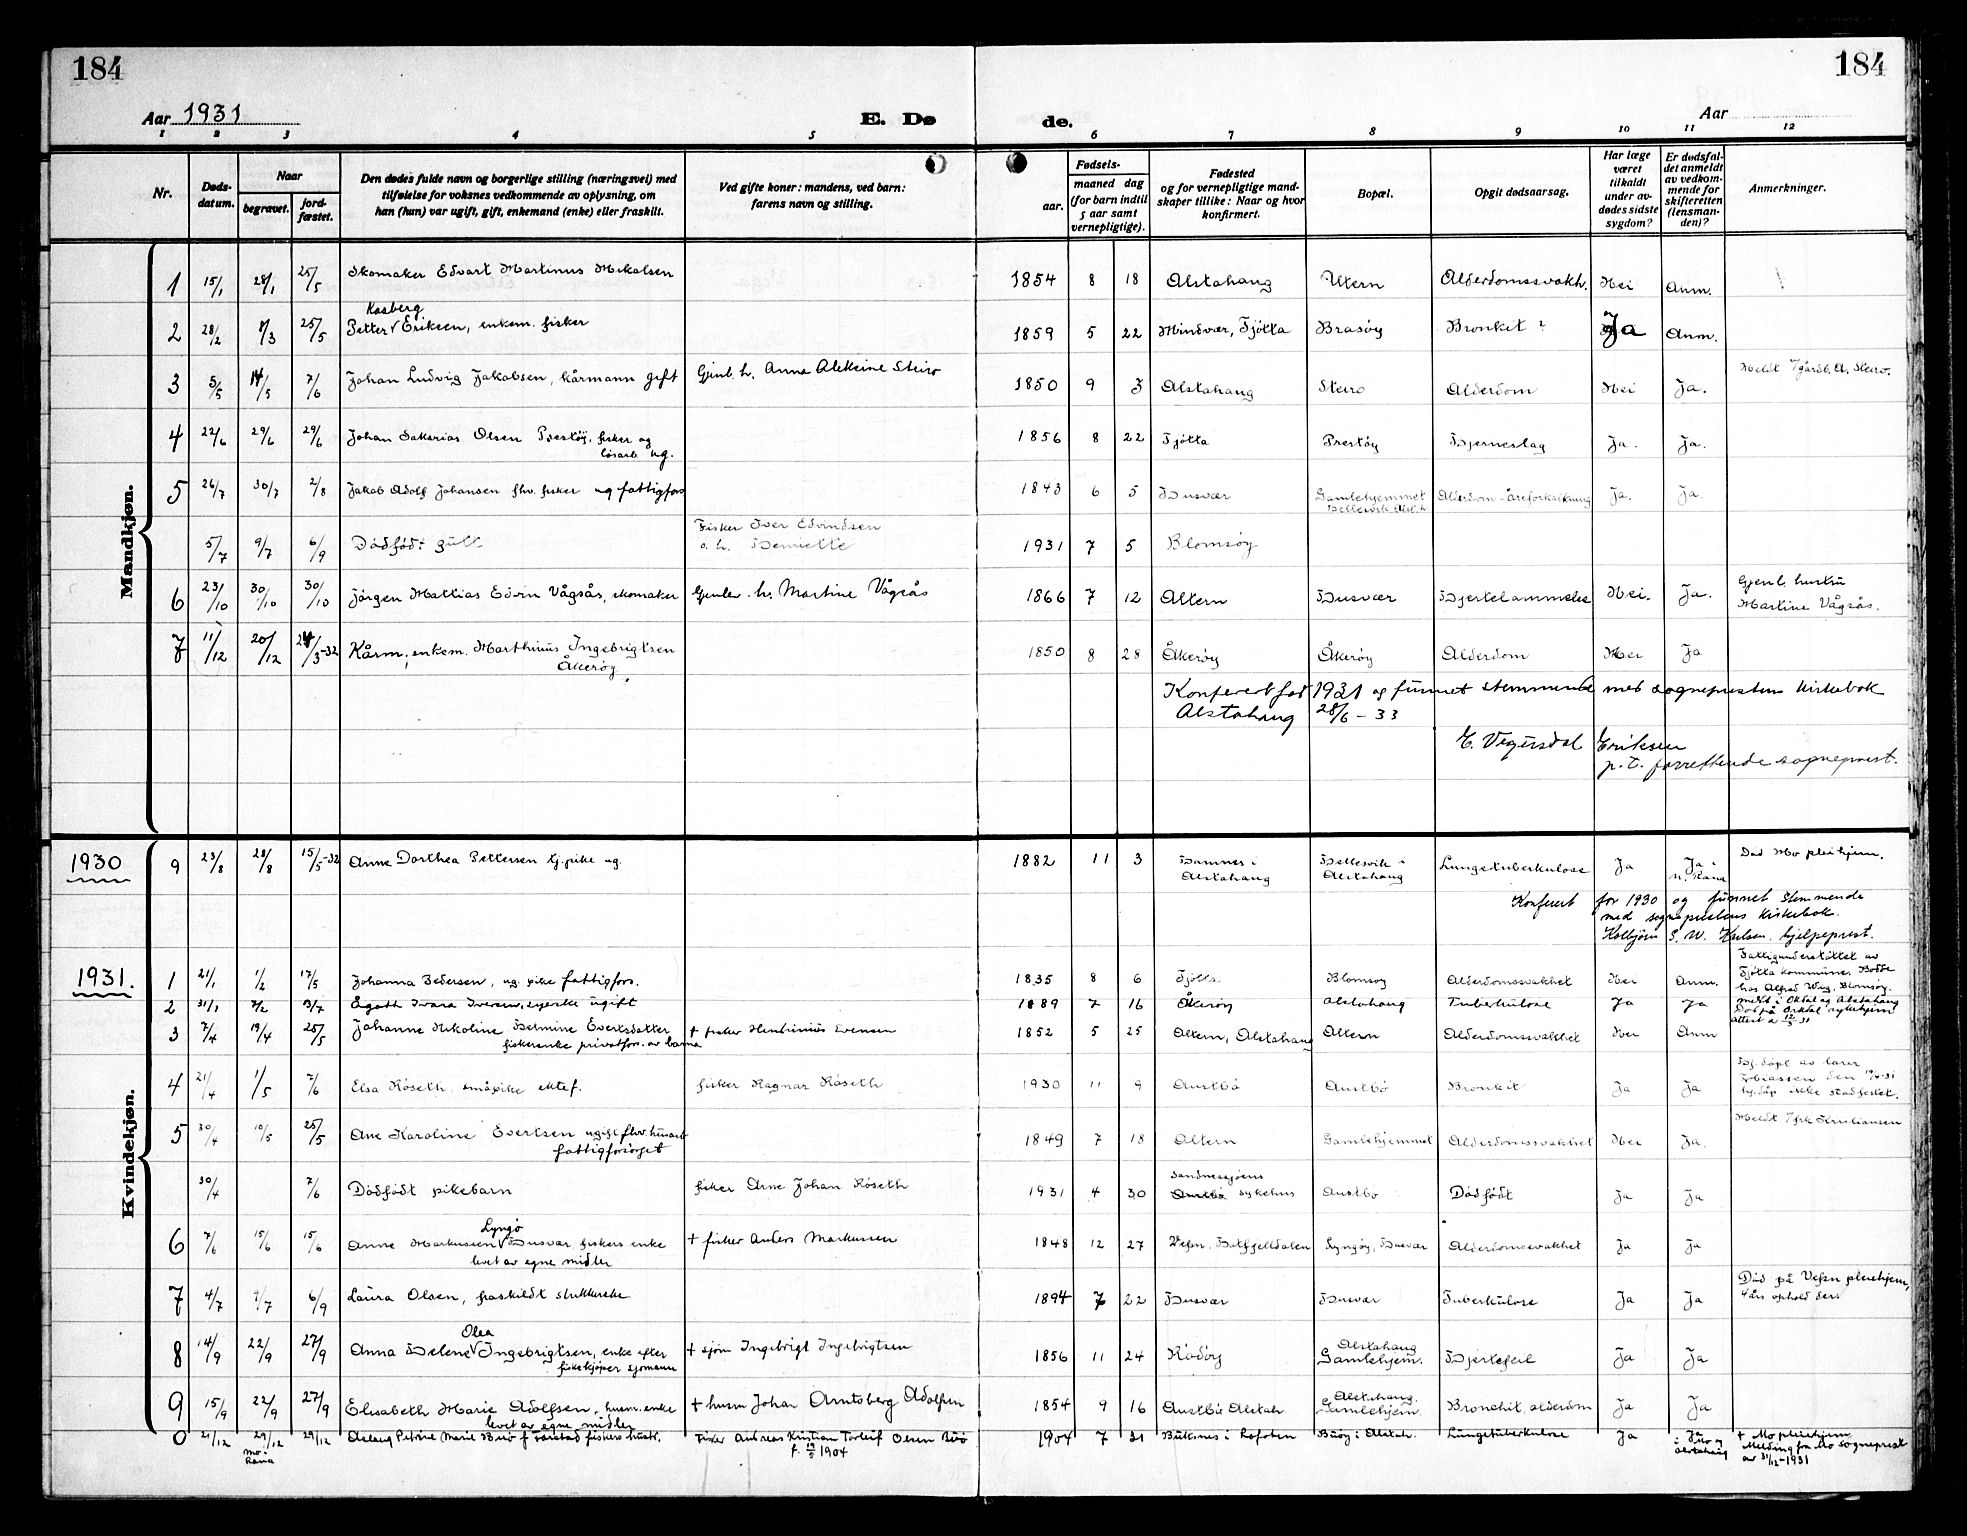 184
184
Aar 1931
E. Dø
de.
Aar
1 2 3 4 5 6 7 8 9 10 11 12
Nr.
Døds-datum.
Naar
begravet.
jord-fæstet.
Den dødes fulde navn og borgerlige stilling (næringsvei) med
tilføielse for voksnes vedkommende av oplysning, om
han (hun) var ugift, gift, enkemand (enke) eller fraskilt.
Ved gifte koner: mandens, ved barn:
farens navn og stilling.
Fødsels-
aar.
maaned dag
(for barn indtil
5 aar samt
vernepligtige).
Fødested
og for vernepligtige mand-
skaper tillike: Naar og hvor
konfirmert.
Bopæl.
Opgit dødsaarsag.
Har læge
været
tilkaldt
under av-
dødes sidste
sygdom?
Er dødsfal-
det anmeldt
av vedkom-
mende for
skifteretten
(lensman-
den)?
Anmerkninger.
Mandkjøn.
1 15/1 28/1 25/5 Skomaker Edvart Martinus Mikalsen 1854 8 18 Alstahaug Altern Alderdomssvakh. Nei Anm.
Kasberg
2 28/2 8/3 25/5 Petter Eriksen, enkem. fisker 1859 5 22 Mindvær, Tjötta Brasöy Bronkit ? Ja Anm.
3 5/5 14/5 7/6 Johan Ludvig Jakobsen, kårmann gift Gjenl. h. Anna Aleksine Steiro 1850 9 3 Alstahaug Steiro Alderdom Nei Ja. Meldt v/gårdb. A. Steiro.
4 22/6 29/6 29/6 Johan Sakarias Olsen Prestöy, fisker og 1856 8 22 Tjötta Prestöy Hjerneslag Ja. Ja.
lösarb ug.
5 26/7 30/7 2/8 Jakob Adolf Johansen fhv. fisker ug fattigfors 1843 6 5 Husvær Gamlehjemmet Alderdom - åreforkalkning Ja. Ja.
Hellesvik Alst.h
Fisker Iver Edvindsen
5/7 9/7 6/9 Dödfödt gutt o. h. Henriette 1931 7 5 Blomsöy
6 23/10 30/10 30/10 Jörgen Mathias Edvin Vågsås, skomaker Gjenlev. h. Martine Vågsås 1866 7 12 Altern Husvær Hjertelammelse Nei. Ja. Gjenl. hustru
Martine Vågsås.
7 11/12 20/12 24/3-32 Kårm, enkem. Marthinus Ingebrigtsen 1850 8 28 Åkeröy Åkeröy Alderdom Nei Ja
Åkeröy.
Konferert for 1931 og funnet stemmende med sogneprestens kirkebok
Alstahaug 28/6 - 33
E. Vegusdal Eriksen
p. t. forrettende sogneprest.
Kvindekjøn.
1930 9 23/8 28/8 15/5-32 Anne Dorthea Pettersen tj.pike ug. 1882 11 3 Hamnes i Hellesvik i Lungetuberkulose Ja Ja i Död Mo pleiehjem.
Alstahaug Alstahaug N. Rana
Konferert for 1930 og funnet stemmende
med sogneprestens kirkebok.
Kolbjörn S. W. Karlsen. hjelpeprest.
1931. 1 21/1 1/2 17/5 Johanna Pedersen, ug. pike fattigfors. 1835 8 6 Tjötta. Blomsöy Alderdomssvakhet Nei Anm. Fattigunderstöttet av
Tjötta kommune. Bodde
hos Alfred Wiig, Blomsöy.
2 31/1 7/2 Ågoth Ivara Iversen, syerske ugift 1889 7 16 Åkeröy Alstahaug Tuberkulose Ja Ja meldt i Orkdal og Alstahaug
Död på Orkdal sykehjem
3 7/4 19/4 25/5 Johanne Nikoline Helmine Evertsdatter + fisker Evensen 1852 5 25 Altern, Alstahaug Altern Alderdomssvakhet Nei Anm
fiskerenke privatfors. av barna
4 21/4 1/5 7/6 Elsa Röseth, småpike ektef. fisker Ragnar Röseth 1930 11 9 Austbö Austbö Bronkit Ja Ja Hj.döpt av lærer
Tobiassen den
hj.dåp ikke stadfestet.
5 30/4 10/5 25/5 Ane Karoline Evertsen ugift fhv. husarb 1849 7 18 Altern Gamlehjemmet Alderdomssvakhet Nei Ja. Meldt v/frk Kristiansen
fattigforsörget
Sandnessjöens
30/4 7/6 Dödfödt pikebarn fisker Arne Johan Röseth 1931 4 30 Austbö sykehus Austbö Dödfödt Ja Ja
Lyngö
6 7/6 15/6 15/6 Anne Markussen Husvær fiskers enke + fisker Anders Markussen 1848 12 27 Vefsn. Hatfjelldalen Lyngöy, Husvær Alderdomssvakhet Ja Ja
levet av egne midler
7 4/7 9/7 6/9 Laura Olsen, fraskildt strikkerske 1894 7 22 Husvær Husvær Tuberkulose Ja Ja Död på Vefsn pleiehjem,
4 års ophold der
Olea
8 14/9 22/9 27/9 Anna Helene Ingebrigtsen, enke efter + sjöm Ingebrigt Ingebrigtsen 1856 11 24 Rödöy Alstahaug Gamlehjem. Hjertefeil Ja Ja
fiskekjöper sjömann
9 15/9 22/9 27/9 Elisabeth Marie Adolfsen, husm.enke + husm Johan Arntsberg Adolfsen 1854 9 16 Austbö Alstah Alstahaug. Gamlehjem. Bronchit, alderdom Ja Ja
levet av egne midler
0 21/12 29/12 29/12 Aslaug Petrine Marie Buö f. Farstad fiskers hustr. Fisker Andreas Kristian Torleif Olsen Buö 1904 7 31 Buksnes i Lofoten Buöy i Alstah. Lungetuberkulose Ja Ja + Mo pleiehjem
Mo i Rana f. 1904 i Mo og Alstahaug Melding fra Mo sogneprest
av 31/12-1931